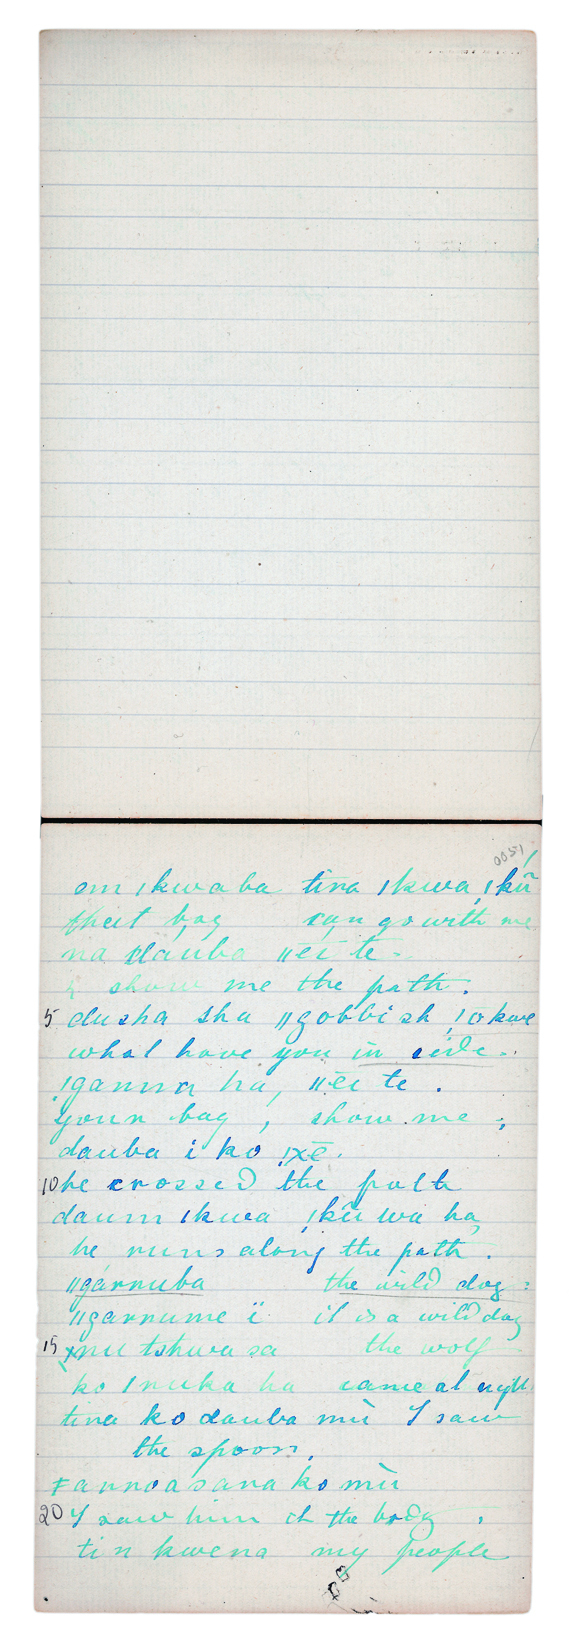 0051
om ǀkwa ba tina ǀkwa ǀkũ
that bag can go with me
na dauba ǁēi te.
show me the path.
5 dusha sha ǁgobbi sh ǃōkwe
what have you in side.
ǃganna ha, ǁēi te.
your bag, show me;
dauba i ko ǃxē.
10 he crossed the path
daum ǀkwa ǀkũ wa ha,
he runs along the path.
ǁgárnuba the wild dog:
ǁgarnume ï it is a wild dog
15 nu tshwa sa the wolf
ko ǀnuka ha came at night
tina ko dauba mù I saw
the spoor.
ǂannoasana ko mù
20 I saw him at the body.
tin kwena my people